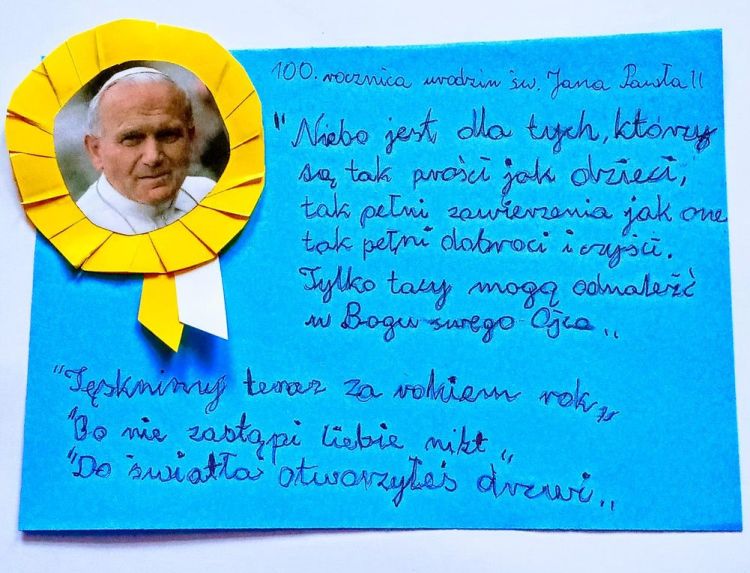 100. rocznica urodzin św. Jana Pawła II
"Niebo jest dla tych, którzy
są tak prości jak dzieci,
tak pełni zawierzenia jak one
tak pełni dobroci i czyści.
Tylko tacy mogą odnaleźć
w Bogu swego Ojca„
"Tęsknimy teraz za rokiem rok„
"Bo nie zastąpi Ciebie nikt„
"Do światła otworzyłeś drzwi„